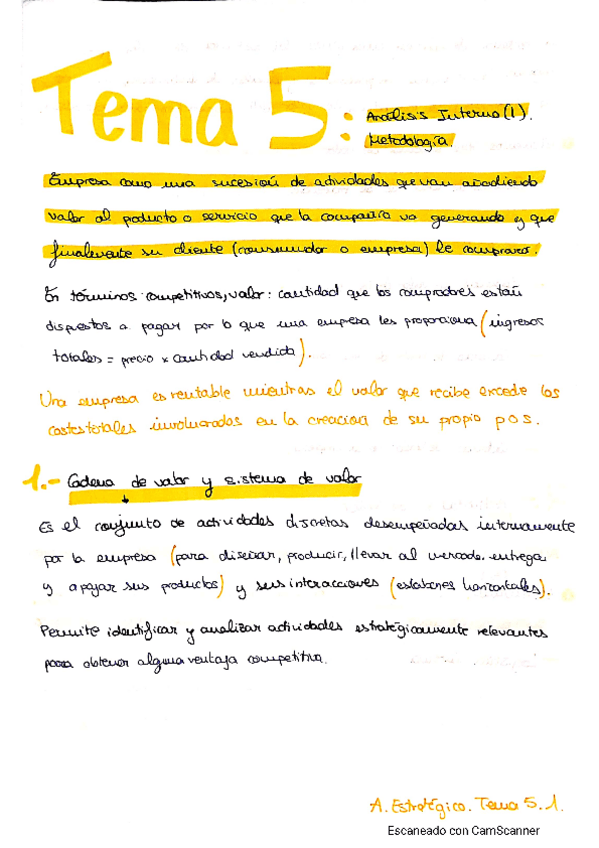 Tema 5: Análisis Interno (1).
Metodología.
Empresa como una sucesión de actividades que van añadiendo
valor al producto o servicio que la compañía va generando y que
finalmente su cliente (consumidor o empresa) le comprará.
En términos competitivos, valor: cantidad que los compradores están
dispuestos a pagar por lo que una empresa les proporciona (ingresos
totales = precio x cantidad vendida).
Una empresa es rentable mientras el valor que recibe excede los
costes totales involucrados en la creación de su propio p o s.
1.- Cadena de valor y sistema de valor
Es el conjunto de actividades discretas desempeñadas internamente
por la empresa (para diseñar, producir, llevar al mercado, entrega
y apoyar sus productos) y sus interacciones (eslabones horizontales).
Permite identificar y analizar actividades estratégicamente relevantes
para obtener alguna ventaja competitiva.
A. Estratégico. Tema 5. 1.
Escaneado con CamScanner